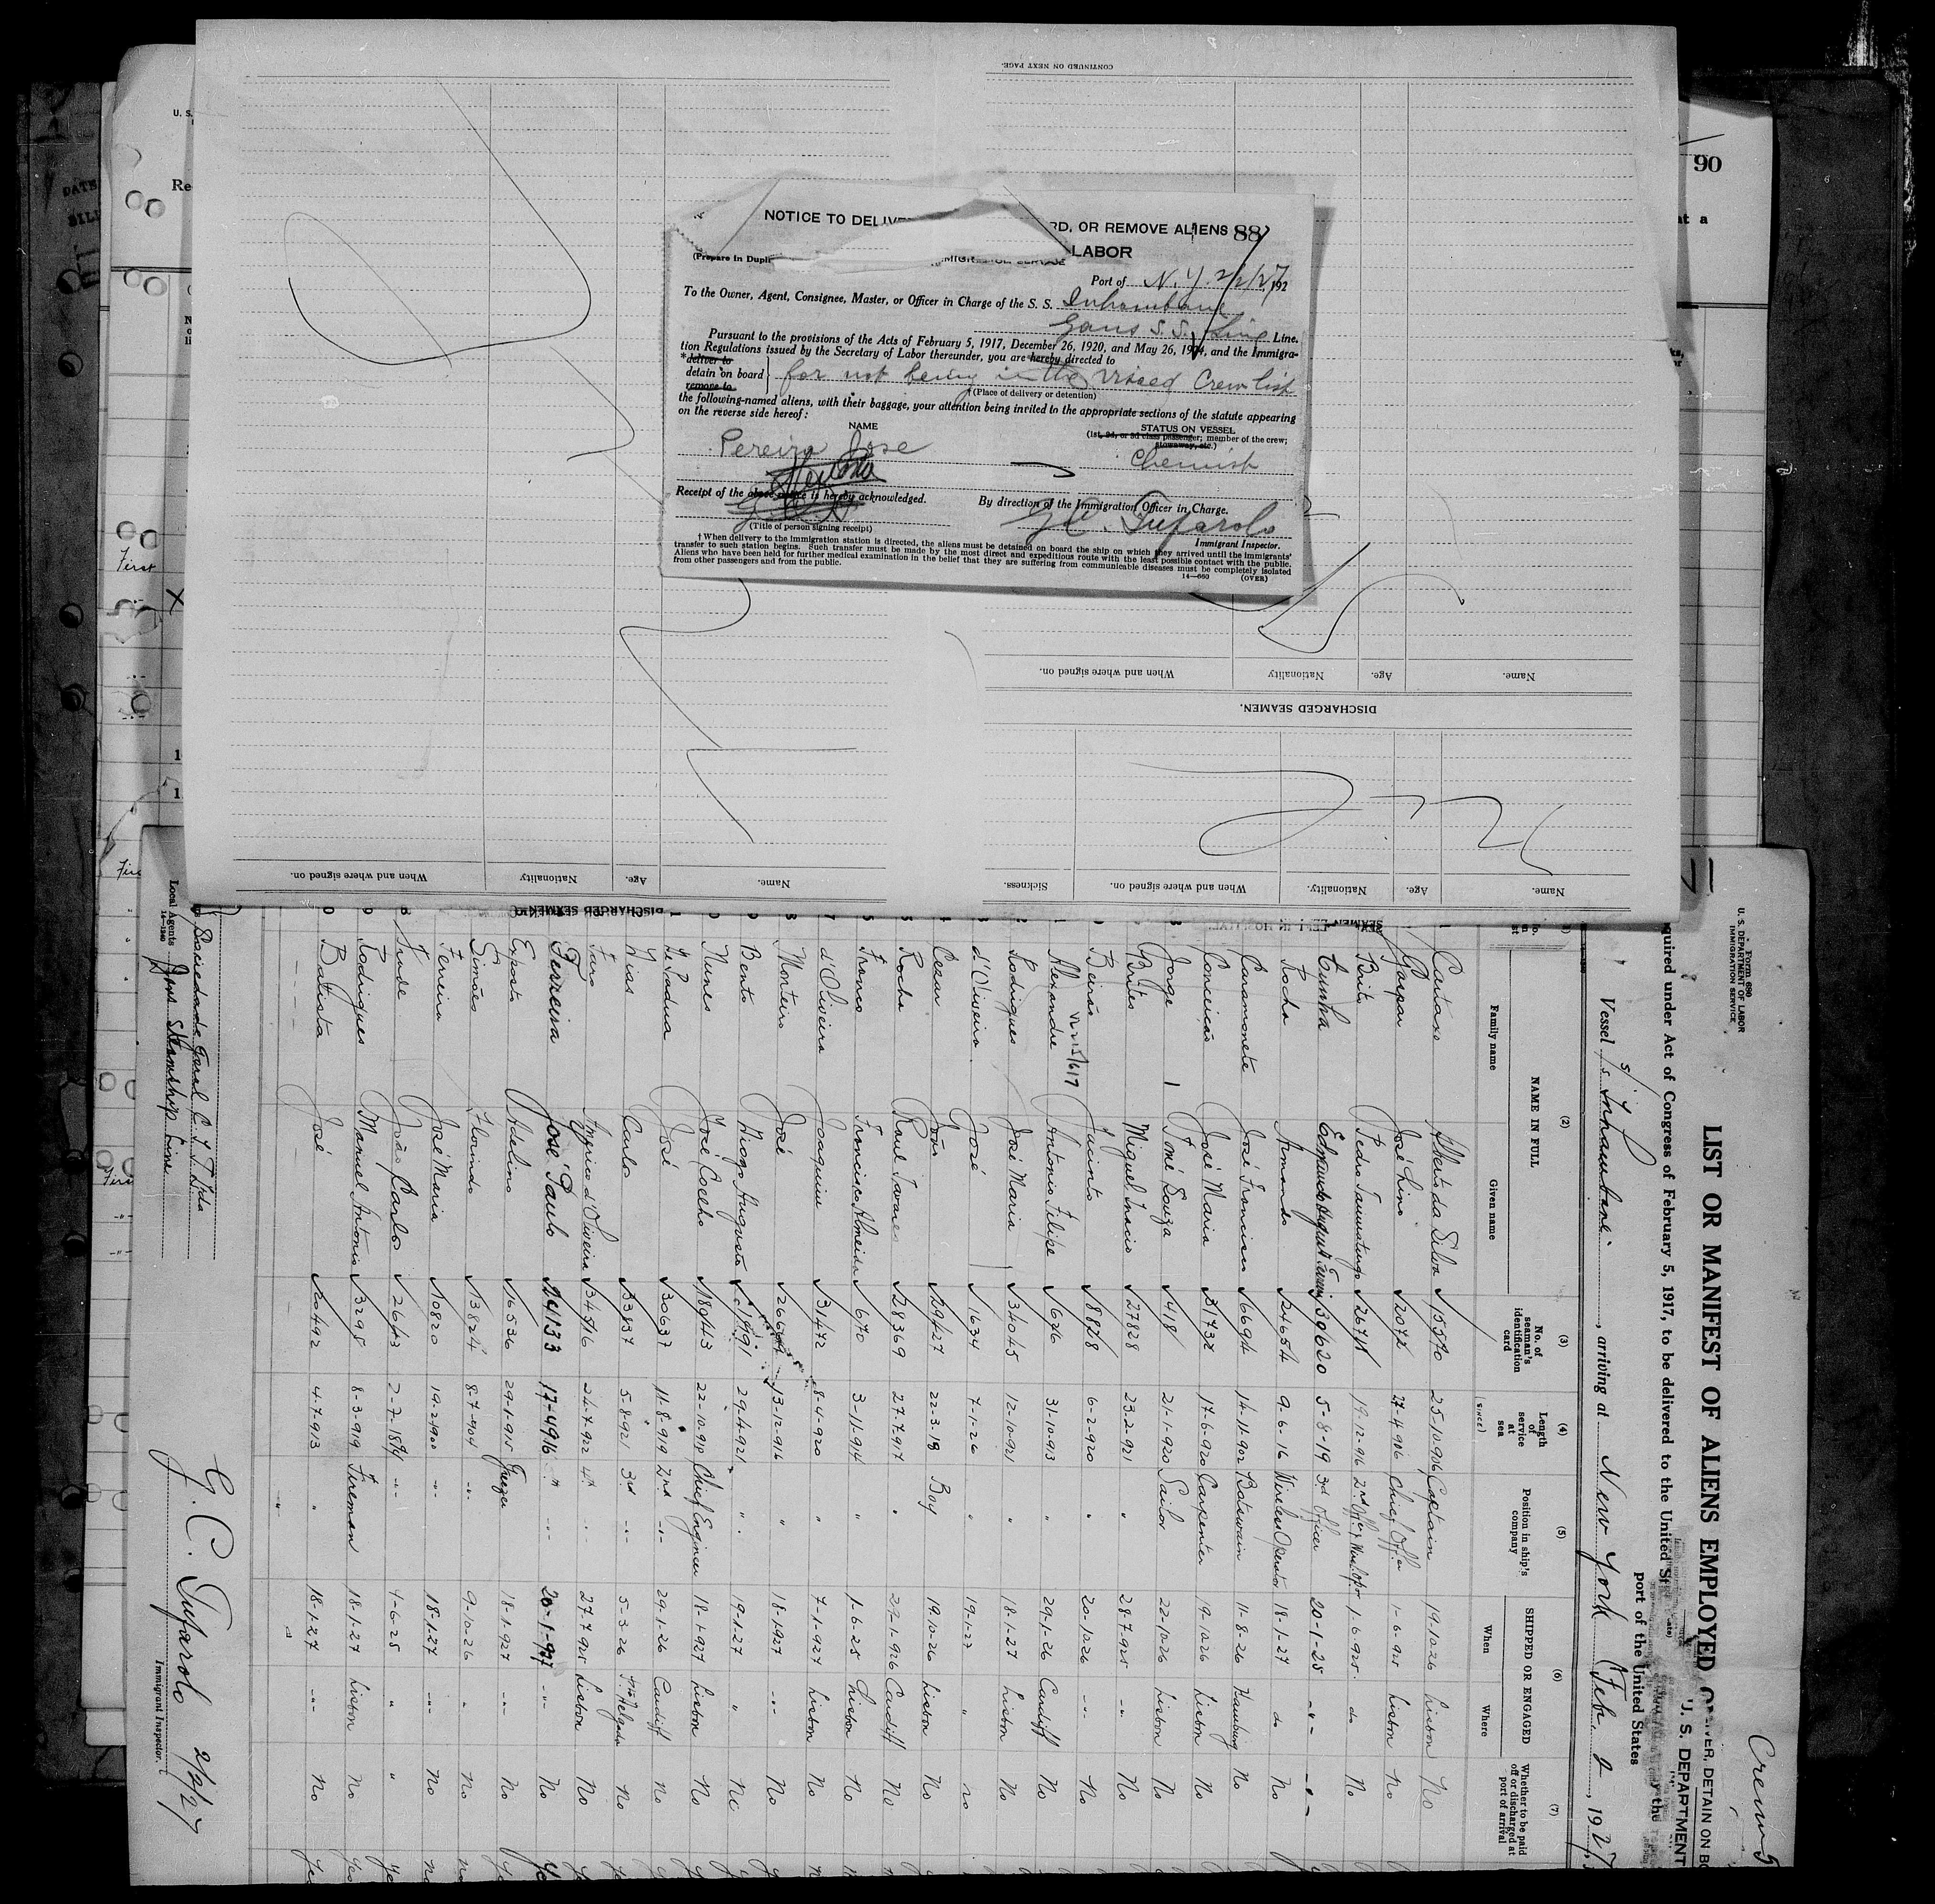 90
CONTINUED ON NEXT PAGE.
NOTICE TO DELIVE
RD, OR REMOVE ALIENS 88
LABOR
(Prepare in Dupli
Port of N.Y. 2/2/27, 192
To the Owner, Agent, Consignee, Master, or Officer in Charge of the S. S. Inhambane
Gans S. S. Line Line.
Pursuant to the provisions of the Acts of February 5, 1917, December 26, 1920, and May 26, 1924, and the Immigra-
tion Regulations issued by the Secretary of Labor thereunder, you are hereby directed to
*deliver to
detain on board } for not being in the visaed Crew list
remove to
†(Place of delivery or detention)
the following-named aliens, with their baggage, your attention being invited to the appropriate sections of the statute appearing
on the reverse side hereof:
NAME STATUS ON VESSEL
(1st, 2d, or 3d class passenger; member of the crew;
stowaway, etc.)
Pereira Jose Chemist
Receipt of the above notice is hereby acknowledged. By direction of the Immigration Officer in Charge.
G.C. Tufarolo
(Title of person signing receipt) Immigrant Inspector.
†When delivery to the immigration station is directed, the aliens must be detained on board the ship on which they arrived until the immigrants'
transfer to such station begins. Such transfer must be made by the most direct and expeditious route with the least possible contact with the public.
Aliens who have been held for further medical examination in the belief that they are suffering from communicable diseases must be completely isolated
from other passengers and from the public.
14—660 (OVER)
Name. Age. Nationality When and where signed on.
DISCHARGED SEAMEN.
Name. Age. Nationality. When and where signed on. Sickness.
Name. Age. Nationality When and where signed on.
DISCHARGED SEAMEN
Form 680
U. S. DEPARTMENT OF LABOR
IMMIGRATION SERVICE
Crew 5
LIST OR MANIFEST OF ALIENS EMPLOYED O
VER, DETAIN ON BO
U. S. DEPARTMENT
quired under Act of Congress of February 5, 1917, to be delivered to the United St
port of the United States
Vessel S/S Inhambane, arriving at New York Feb. 2, 1927
(2) (3) (4) (5) (6) (7)
NAME IN FULL
Family name Given name
No. of seaman's identification card
Length of service at sea
(SINCE)
Position in ship's company
SHIPPED OR ENGAGED
When Where
Whether to be paid off or discharged at port of arrival
Cartaxo Alberto da Silva 15570 25-10-906 Captain 19-10-26 Lisbon No
Gaspar José Lino 2072 27-4-906 Chief Offer 1-6-925 Lisbon No
Brito Pedro 2671 19-12-916 2nd Offer 1-6-925 do No
Cunha Edmundo August 30620 5-8-19 3rd Officer 20-1-25 -"-
Rocha Armando 24654 9-6-16 Wireless Operator 18-1-27 do No
Caramonete José Francisco 6694 14-11-902 Botswain 11-8-26 Hamburg No
Conceicão José Maria 31732 17-6-920 Carpenter 19-10-26 Lisbon No
Jorge Tomé Souza 418 21-1-920 Sailor 22-10-26 Lisbon No
Brites Miguel Inacio 27828 23-2-921 " 28-7-925 -"- No
Beirão Jacinto 8828 6-2-920 " 20-10-26 -"- No
Alexandre Antonio Filipe 6716 31-10-913 " 29-1-26 Cardiff No
Rodrigues José Maria 34045 12-10-921 " 18-1-27 Lisbon No
d'Oliveira José 1634 7-1-26 " 19-1-27 " no
Cezar João 29427 22-3-18 Boy 19-10-26 Lisbon No
Rocha Raul Tavares 28369 27-7-917 " 29-1-926 Cardiff No
Franco Francisco Almeida 670 3-11-914 " 1-6-25 Lisbon No
d'Oliveira Joaquim 31472 8-4-920 " 7-1-927 Lisbon No
Monteiro José 13-12-916 " 18-1-927 -"- No
Bento Diogo Augusto 29-4-921 " 19-1-27 " No
Nunes José Coelho 18943 22-10-910 Chief Engineer 18-1-927 Lisbon No
de Padua José 30637 11-8-919 2nd -"- 29-1-26 Cardiff No
Dias Carlo 33837 5-8-921 3rd -"- 5-3-26 No
Faro Americo d'Oliveira 34516 24-7-922 4th 27-7-925 Lisbon No
Ferreira José Paulo 24133 17-4-916 " 20-1-927 -"- No
Exposto Adelino 16536 29-1-915 18-1-927 -"- No
Simões Florindo 13824 8-7-904 -"- 9-10-26 " No
Ferreira José Maria 10820 19-2-900 -"- 18-1-27 -"- No
João Carlos 2-7-1891 -"- 4-6-25 " "
Rodrigues Manuel Antonio 3295 8-3-919 Fireman 18-1-27 Lisbon No
Batista José 20492 4-7-913 " 18-1-27 -"- No
Sociedade Geral
Local Agents Gans Steamship Line
14—1240
G. C. Tufarolo 2/2/27
Immigrant Inspector.